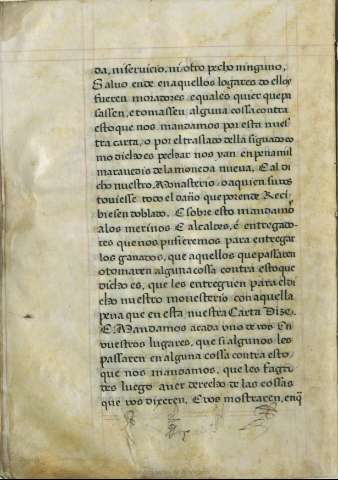 da, ni servicio, ni otro pecho ninguno,
Salvo ende en aquellos logares do ellos
fueren moradores equales quier que pa
sassen, e tomassen alguna cossa contra
esto que nos mandamos por esta nues
tra carta, o por el traslado della signado co
mo dicho es pechar nos yan en pena mil
maravedis de la moneda nueva, E al di
cho nuestro Monasterio, o a quien su vos
toviesse todo el daño que por ende Reci
biesen doblado. E sobre esto mandamo
a los merinos E alcaldes, é entregado
res que nos pusieremos para entregar
los ganados, que aquellos que passaren
o tomaren alguna cossa contra esto que
dicho es, que les entreguen para el di
cho nuestro monesterio con aquella
pena que en esta nuestra Carta Dize.
E Mandamos a cada uno de vos En
vuestros lugares, que si algunos les
passaren en alguna cossa contra esto
que nos mandamos, que les faga
des luego aver derecho de las cossas
que vos dixeren, E vos mostraren, en q